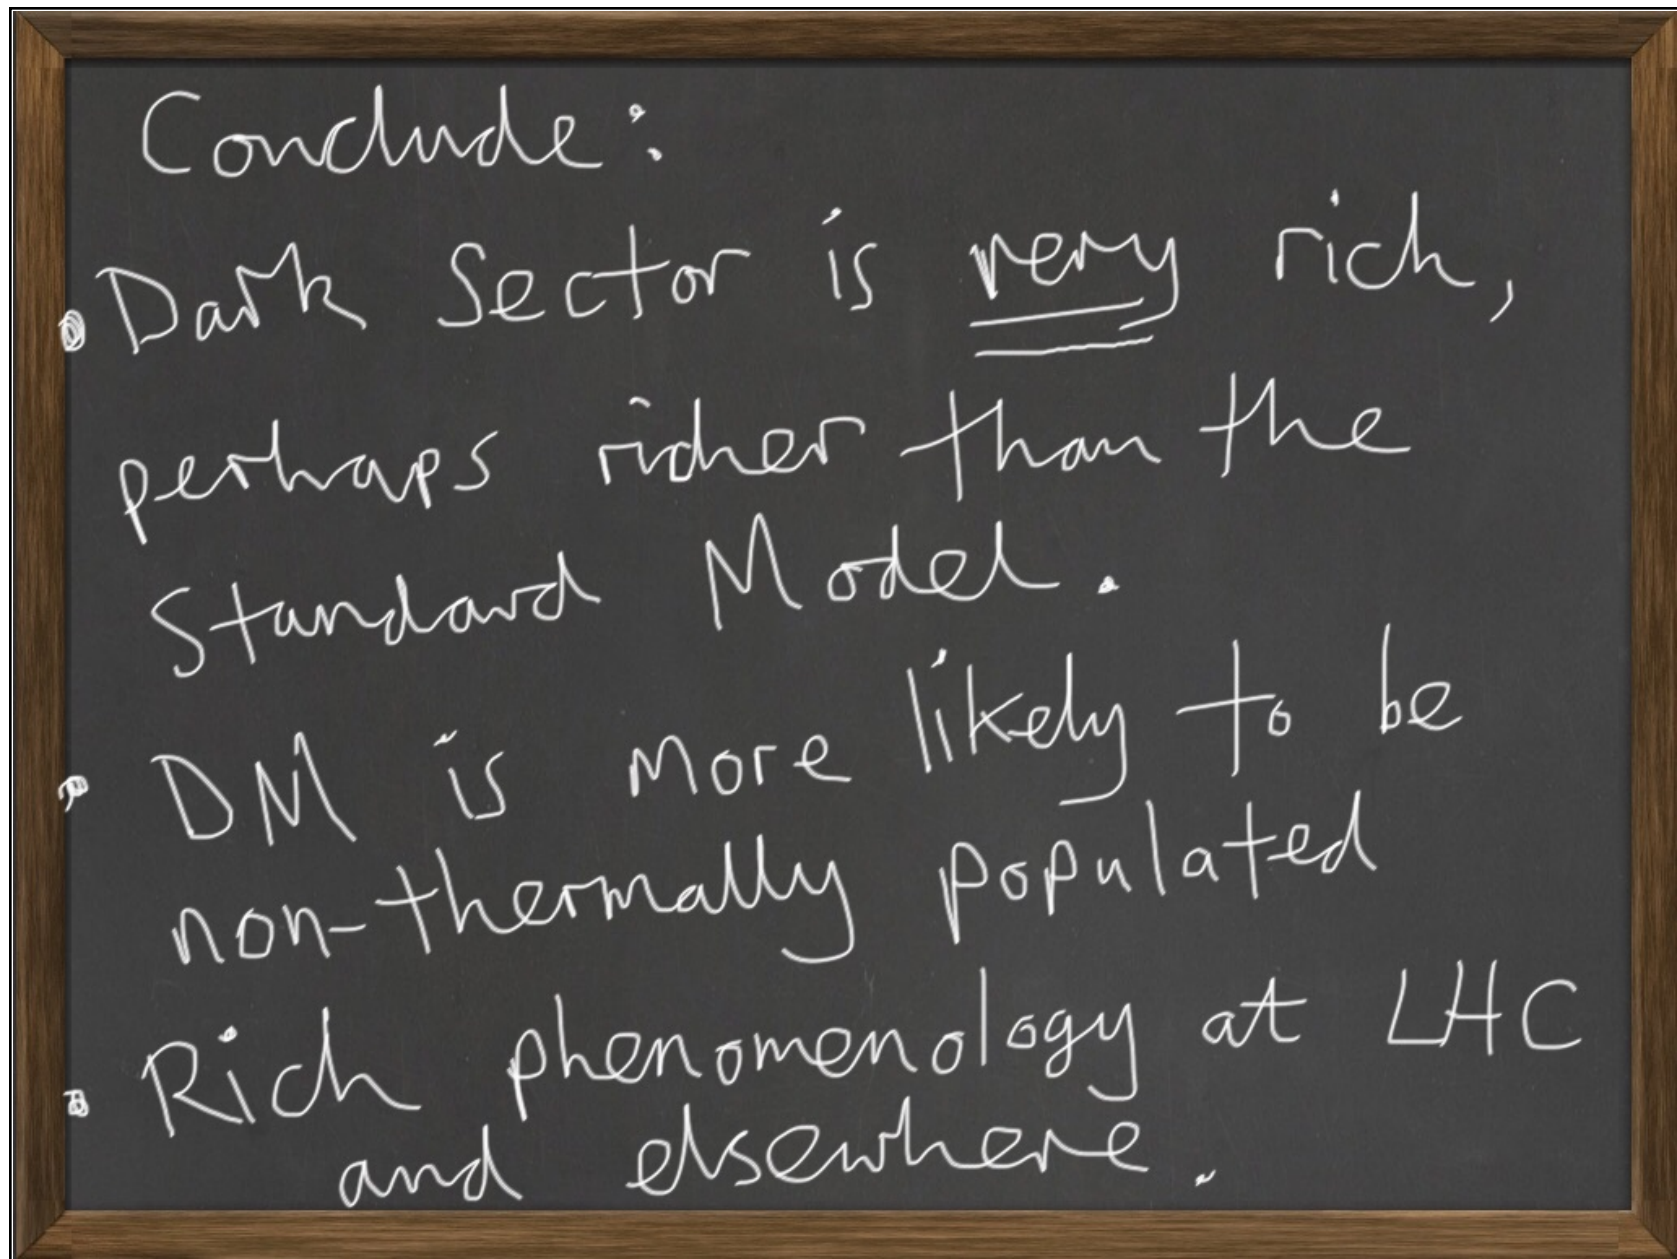 Conclude:
• Dark Sector is very rich,
perhaps richer than the
Standard Model.
• DM is more likely to be
non-thermally populated
• Rich phenomenology at LHC
and elsewhere.